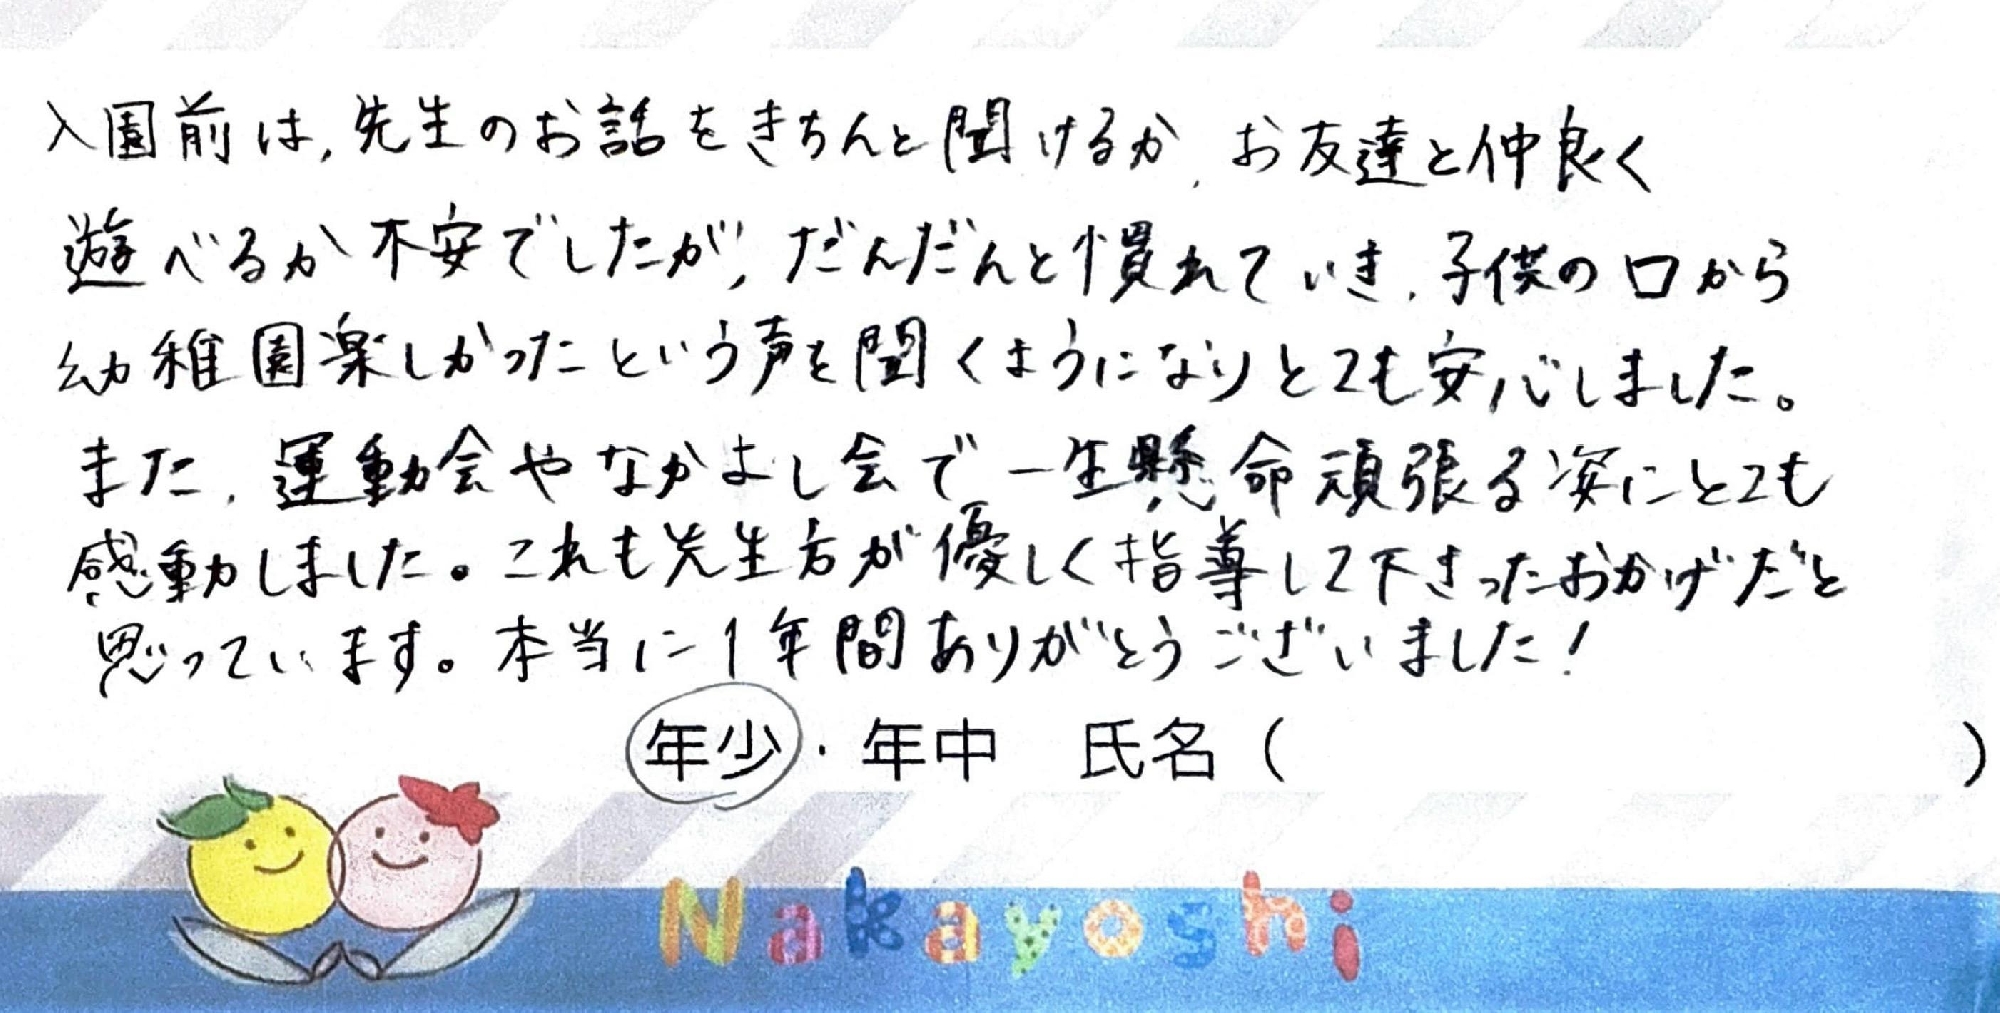 入園前は,先生のお話をきちんと聞けるか,お友達と仲良く
遊べるか不安でしたが,だんだんと慣れていき,子供の口から
幼稚園楽しかったという声を聞くようになりとても安心しました。
また,運動会やなかよし会で一生懸命頑張る姿にとても
感動しました。これも先生方が優しく指導して下さったおかげだと
思っています。本当に1年間ありがとうございました!
年少・年中 氏名( )
Nakayoshi